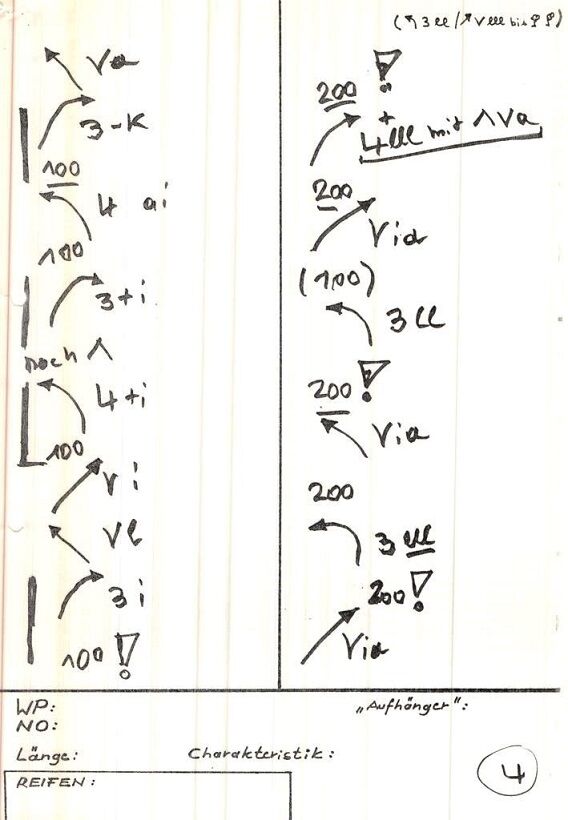 (↰ 3 ll / ↗ V lll bis
Va
3-K
100
4 ai
100
3+i
noch ^
4+i
100
Vi
Vl
3i
100 !
200 !
+
4 lll mit ^ Va
200
Via
(100)
3 ll
200 !
Via
200
3 lll
200 !
Via
WP:
NO:
„Aufhänger":
Länge:
Charakteristik:
REIFEN:
4